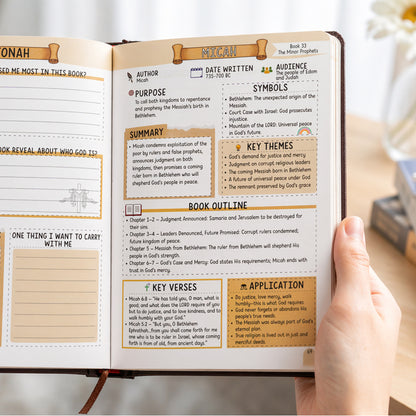 JONAH
SED ME MOST IN THIS BOOK?
OOK REVEAL ABOUT WHO GOD IS?
ONE THING I WANT TO CARRY
WITH ME
MICAH
Book 33
The Minor Prophets
AUTHOR
Micah
DATE WRITTEN
735-700 BC
AUDIENCE
The people of Edom
and Judah
PURPOSE
To call both kingdoms to repentance
and prophesy the Messiah's birth in
Bethlehem.
SUMMARY
Micah condemns exploitation of the
poor by rulers and false prophets,
announces judgment on both
kingdoms, then promises a coming
ruler born in Bethlehem who will
shepherd God's people in peace.
SYMBOLS
Bethlehem: The unexpected origin of the
Messiah.
Court Case with Israel: God prosecutes
injustice.
Mountain of the LORD: Universal peace
in God's future.
KEY THEMES
God's demand for justice and mercy
Judgment on corrupt religious leaders
The coming Messiah born in Bethlehem
A future of universal peace under God
The remnant preserved by God's grace
BOOK OUTLINE
Chapter 1-2 – Judgment Announced: Samaria and Jerusalem to be destroyed for
their sins.
Chapter 3-4 – Leaders Denounced, Future Promised: Corrupt rulers condemned;
future kingdom of peace.
Chapter 5 – Messiah from Bethlehem: The ruler from Bethlehem will shepherd His
people in God's strength.
Chapter 6-7 – God's Case and Mercy: God states His requirements; Micah ends with
trust in God's mercy.
KEY VERSES
Micah 6:8 – "He has told you, O man, what is
good; and what does the LORD require of you
but to do justice, and to love kindness, and to
walk humbly with your God."
Micah 5:2 – "But you, O Bethlehem
Ephrathah...from you shall come forth for me
one who is to be ruler in Israel, whose coming
forth is from of old, from ancient days."
APPLICATION
Do justice, love mercy, walk
humbly-this is what God requires
God never forgets or abandons His
people's true needs.
The Messiah was always part of God's
eternal plan.
True religion is lived out in just and
merciful deeds.